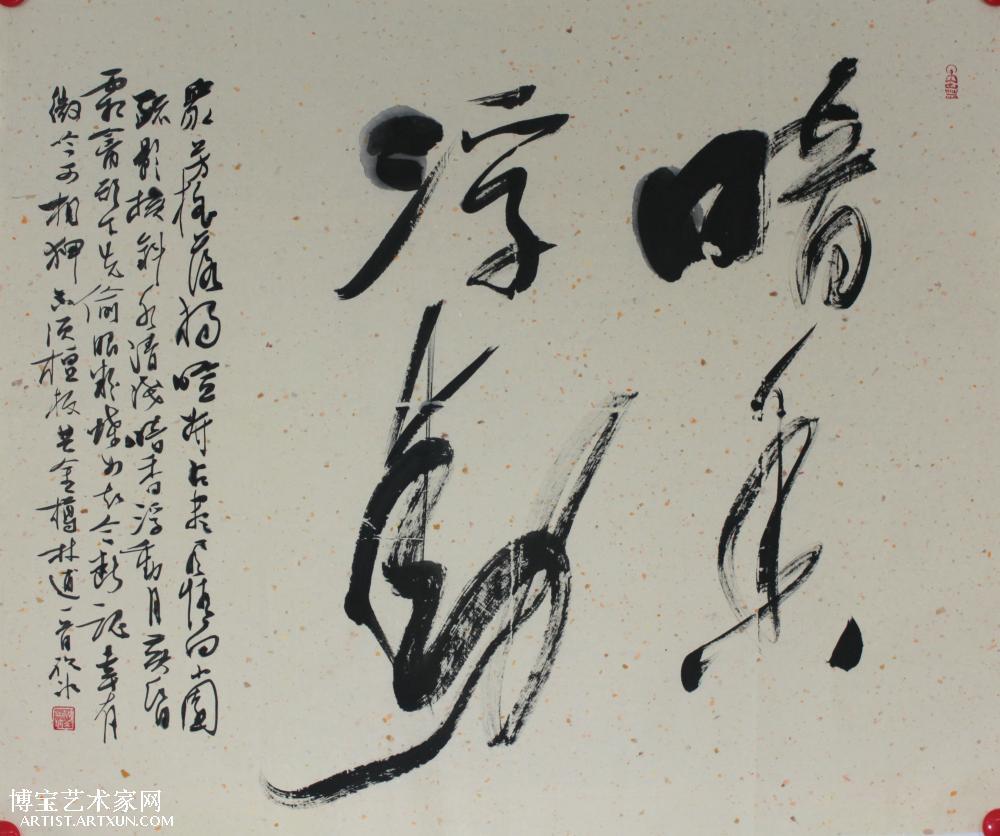 暗香
浮動
眾芳摇落獨暄妍占盡風情向小園
疏影横斜水清淺暗香浮動月黃昏
霜禽欲下先偷眼粉蝶如知合斷魂幸有
微吟可相狎不須檀板共金樽林逋一首
博宝艺术家网
ARTIST.ARTXUN.COM